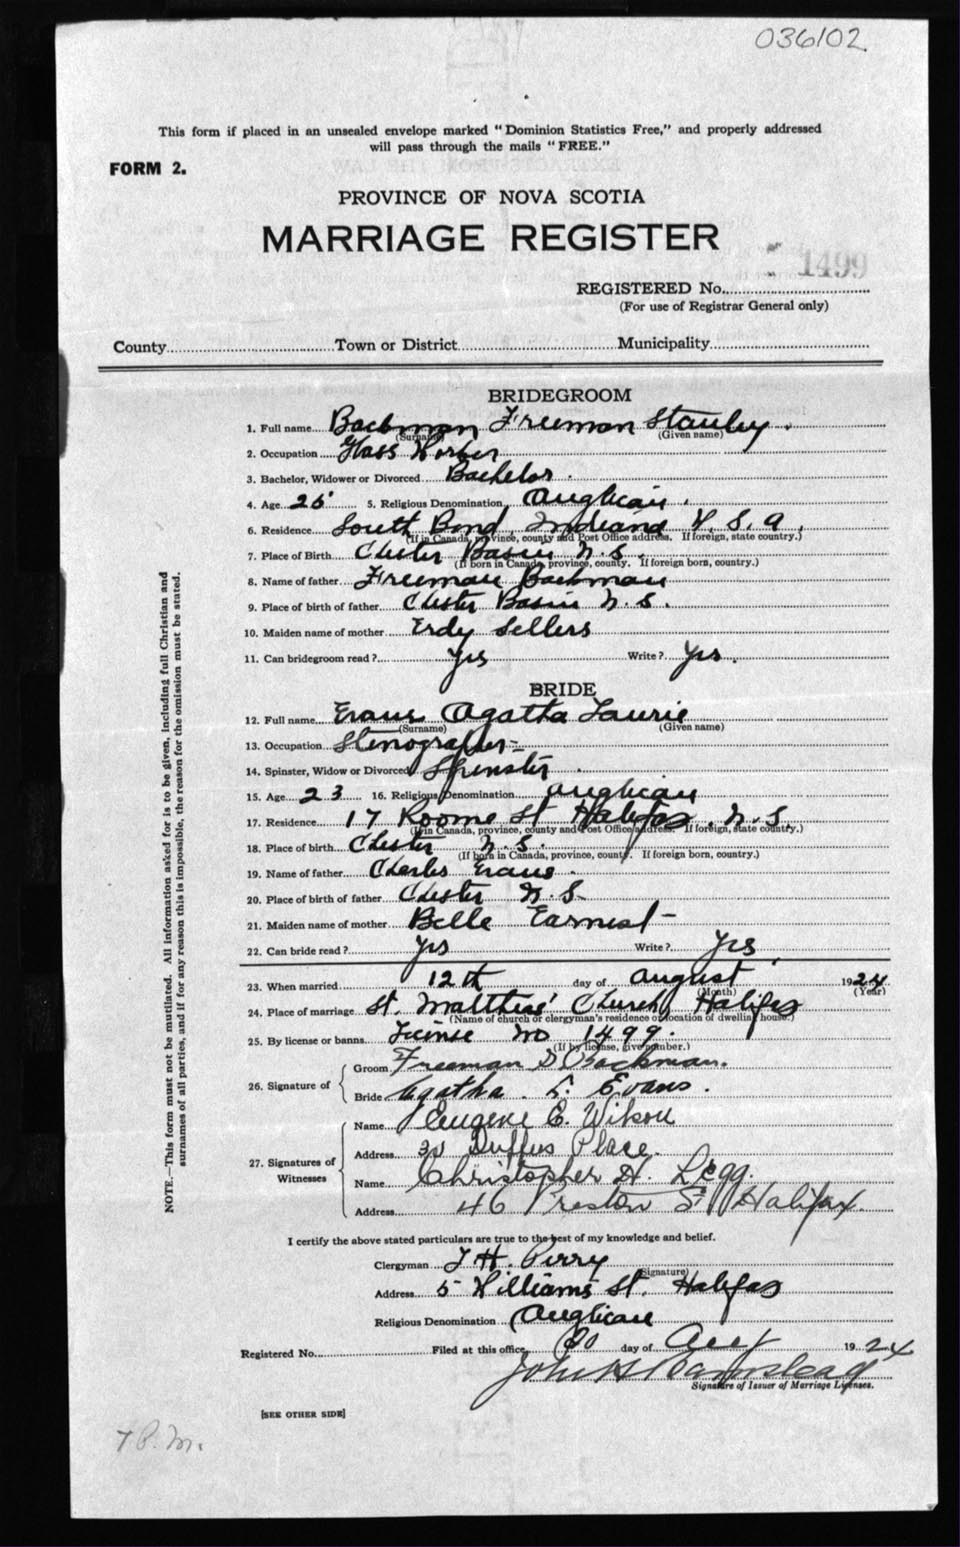 036102
This form if placed in an unsealed envelope marked "Dominion Statistics Free," and properly addressed
will pass through the mails "FREE."
FORM 2.
PROVINCE OF NOVA SCOTIA
MARRIAGE REGISTER
1499
REGISTERED No.
(For use of Registrar General only)
County Town or District Municipality
BRIDEGROOM
1. Full name Backman Freeman Stanley.
(Surname) (Given name)
2. Occupation Glass Worker
3. Bachelor, Widower or Divorced Bachelor.
4. Age 25 5. Religious Denomination Anglican.
6. Residence South Bend, Indiana U.S.A.
(If in Canada, province, county and Post Office address. If foreign, state country.)
7. Place of Birth Chester Basin N.S.
(If born in Canada, province, county. If foreign born, country.)
8. Name of father Freeman Backman
9. Place of birth of father Chester Basin N.S.
10. Maiden name of mother Erdy Sellers
11. Can bridegroom read? Yes Write? Yes.
BRIDE
12. Full name Evans Agatha Laurie
(Surname) (Given name)
13. Occupation Stenographer-
14. Spinster, Widow or Divorced Spinster.
15. Age 23 16. Religious Denomination Anglican
17. Residence 17 Roome St Halifax, N.S.
(If in Canada, province, county and Post Office address. If foreign, state country.)
18. Place of birth Chester N.S.
(If born in Canada, province, county. If foreign born, country.)
19. Name of father Charles Evans.
20. Place of birth of father Chester N.S-
21. Maiden name of mother Belle Earnest-
22. Can bride read? Yes Write? Yes
23. When married 12th day of August 1924
(Month) (Year)
24. Place of marriage St. Matthias' Church Halifax
(Name of church or clergyman's residence or location of dwelling house.)
25. By license or banns License No 1499.
(If by license, give number.)
26. Signature of
Groom Freeman S Backman.
Bride Agatha L. Evans.
27. Signatures of Witnesses
Name Eugene C. Wilson
Address Duffus Place.
Name Christopher H. Legg.
Address 46 Preston St Halifax.
I certify the above stated particulars are true to the best of my knowledge and belief.
Clergyman T H. Perry
(Signature)
Address 5 Williams St. Halifax
Religious Denomination Anglican
Registered No. Filed at this office day of Aug 1924
John H
Signature of Issuer of Marriage Licenses.
[SEE OTHER SIDE]
NOTE.—This form must not be mutilated. All information asked for is to be given, including full Christian and
surnames of all parties, and if for any reason this is impossible, the reason for the omission must be stated.